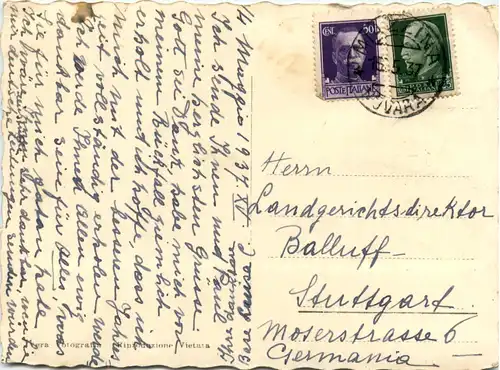 4 Maggio 1937. XV.
Ich sende Ihnen und Paul
meine herzlichsten Grüsse
Gott sei Dank, habe mich von
meinem Rückfall ziemlich
erholt und ich hoffe, dass ich
mich mit der besseren Jahres
zeit vollständig erholen werde
Ich werde Ihnen Allen ewig
dankbar sein für Alles was
Sie für mich getan habe
CENT. 50
POSTE ITALIANE
NOVARA
Herrn
Landgerichtsdirektor
Balluff
Stuttgart
Moserstrasse 6
Germania
Vera Fotografia - Riproduzione Vietata